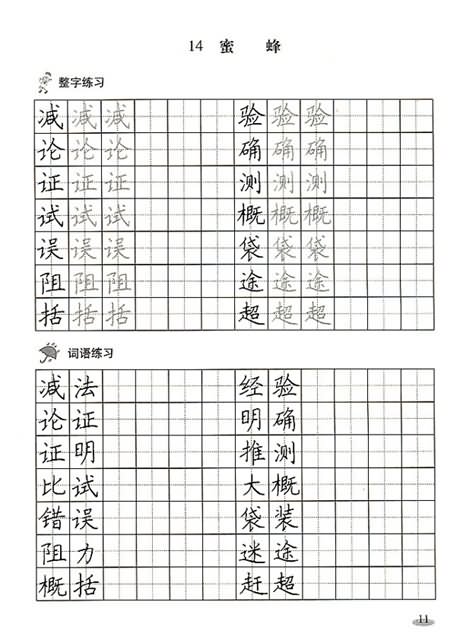 14 蜜 蜂
整字练习
减减减 验验验
论论论 确确确
证证证 测测测
试试试 概概概
误误误 袋袋袋
阻阻阻 途途途
括括括 超超超
词语练习
减法 经验
论证 明确
证明 推测
比试 大概
错误 袋装
阻力 迷途
概括 赶超
11